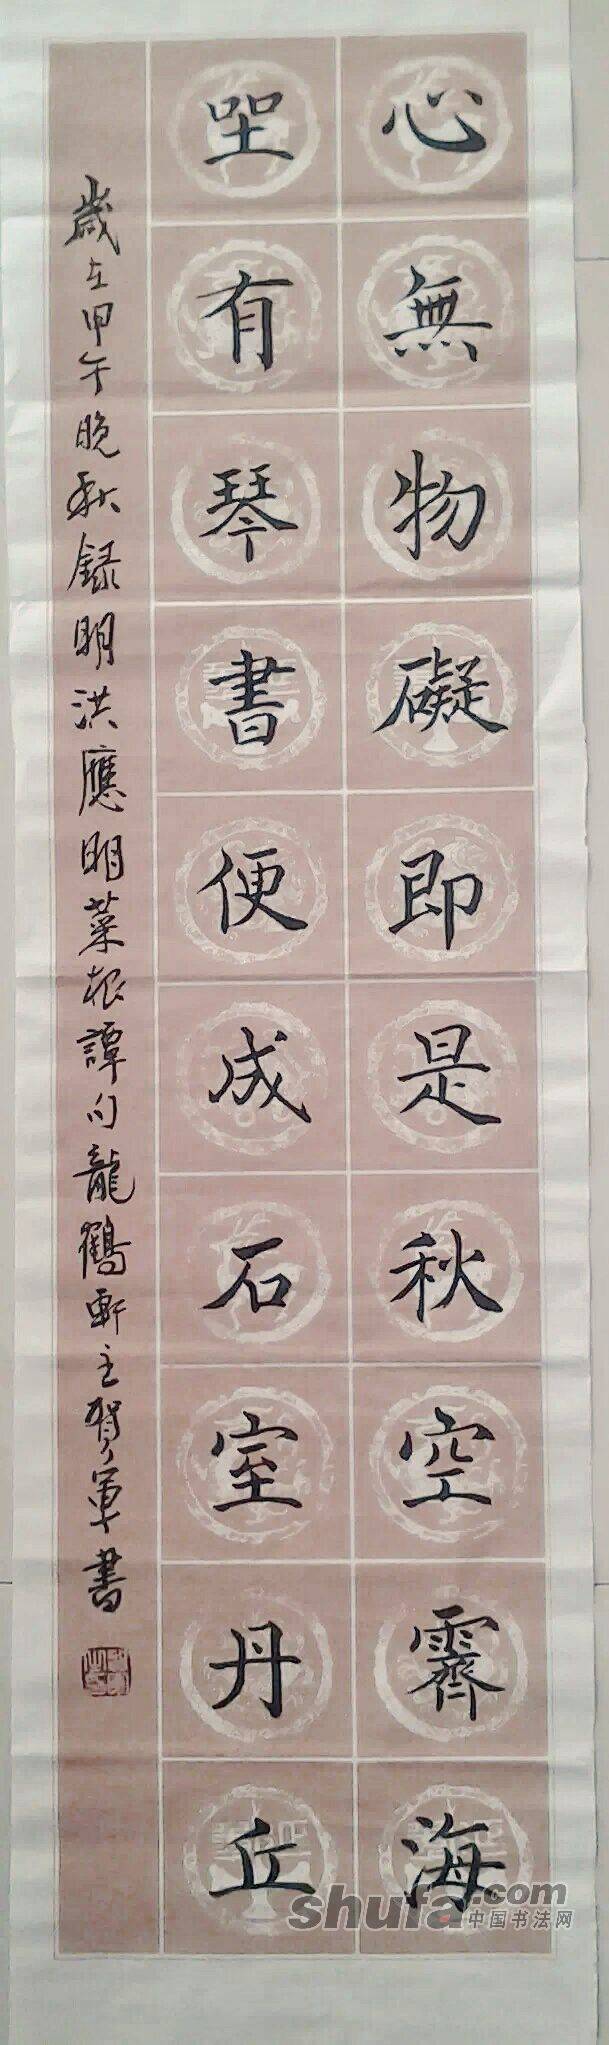 心無物礙即是秋空霽海
坐有琴書便成石室丹丘
歲在甲午晚秋錄明洪應明菜根譚句龍鶴軒主賀軍書
shufa.com
中国书法网